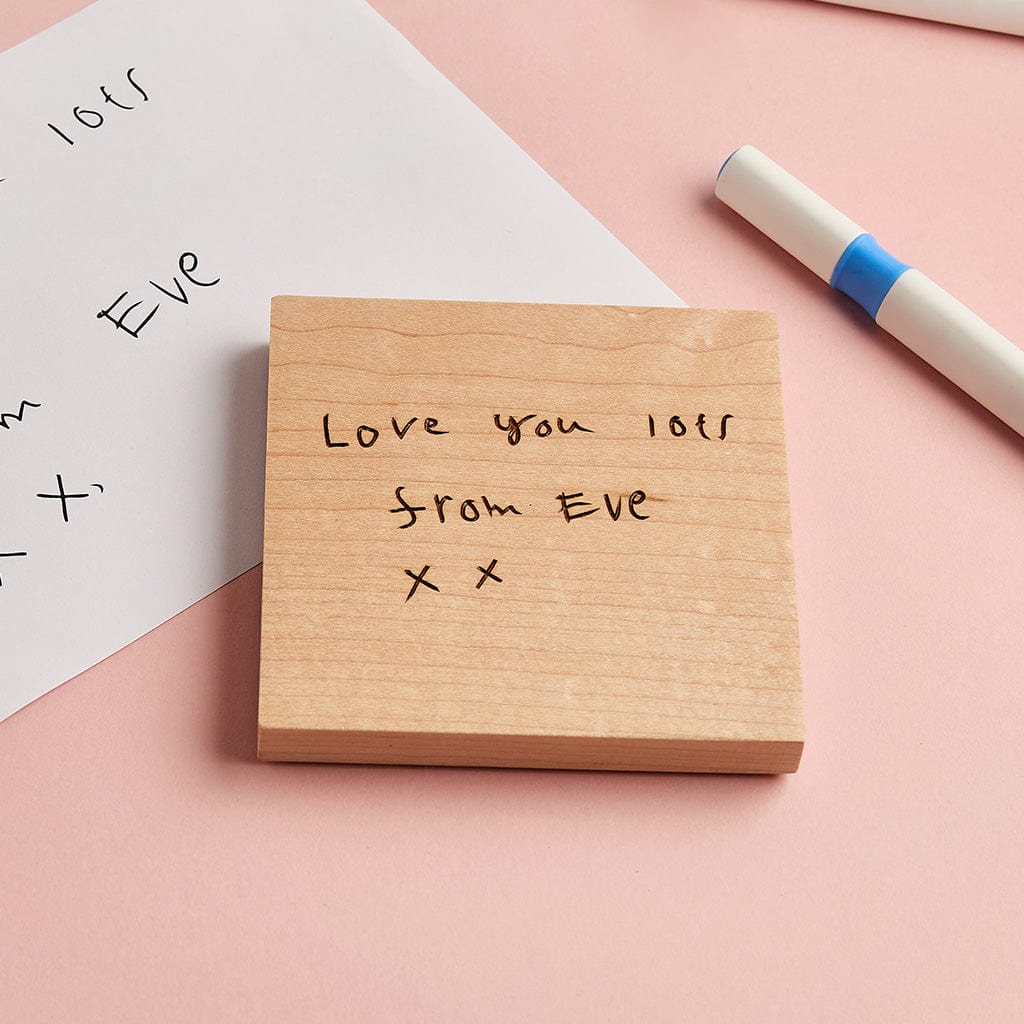 lots
Eve
m
x
Love you lots
from Eve
x x